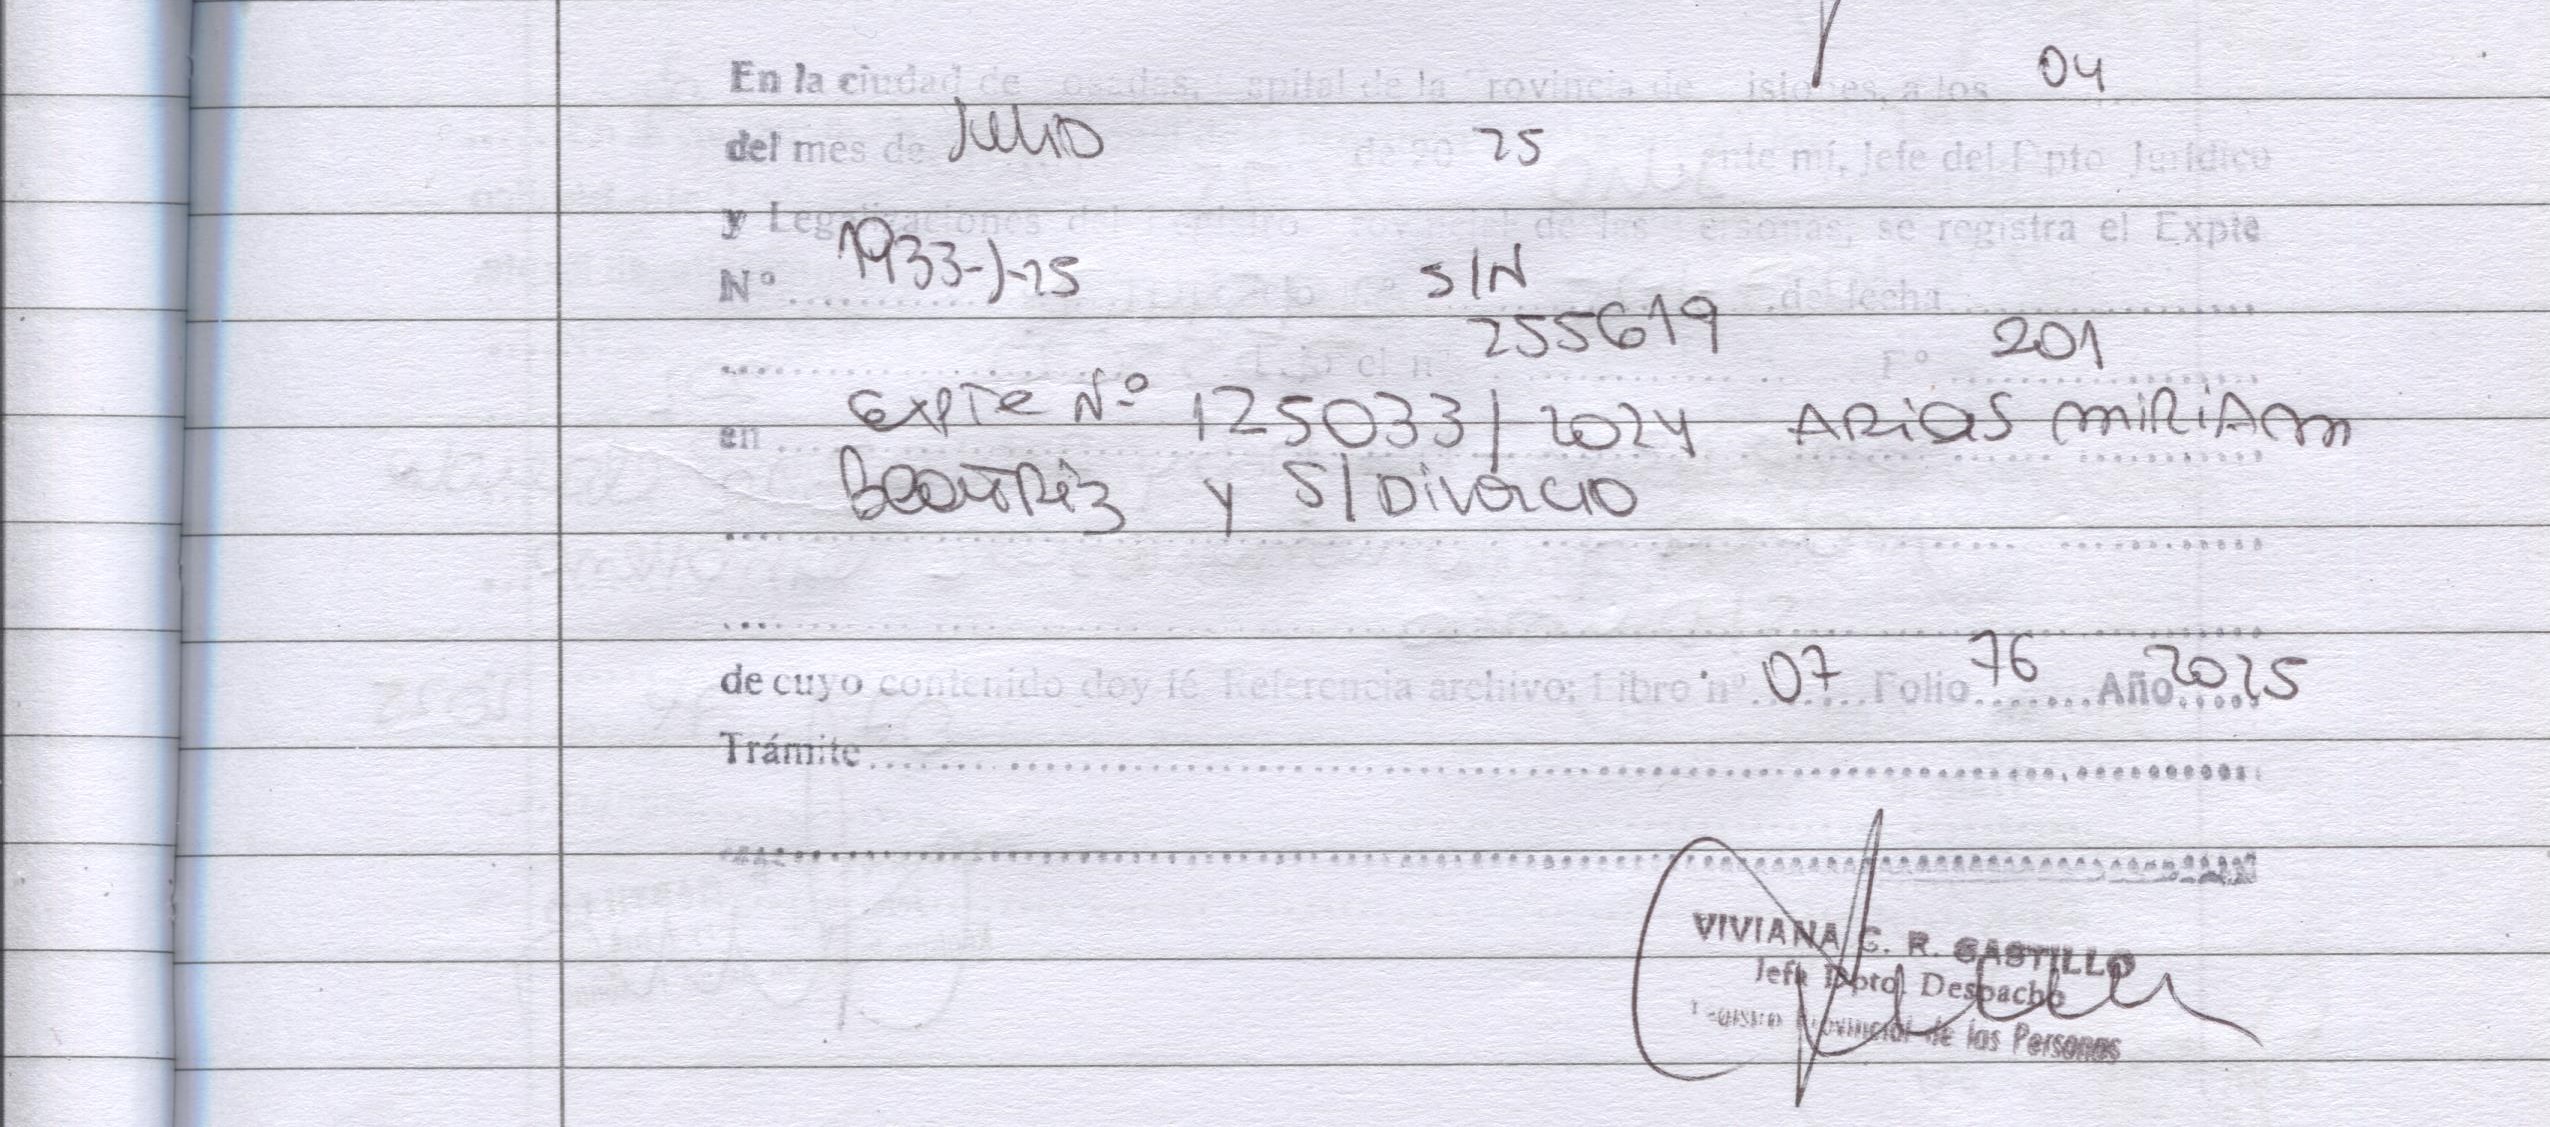 En la ciudad de osadas, apital de la rovincia de isiones, a los 04
del mes de Julio de 20 25 ante mí, Jefe del Dpto Jurídico
y Legalizaciones del de las ersonas, se registra el Expte
Nº 1933-J-25 S/N de fecha
bajo el nº 255619 Fº 201
en Expte Nº 125033/2024 ARIAS MIRIAM
BEATRIZ y S/ Divorcio
de cuyo contenido doy fé Referencia archivo: Libro nº 07 Folio 76 Año 2025
Trámite
VIVIANA C. R. CASTILLO
Jefa Dpto. Despacho
Registro Provincial de las Personas